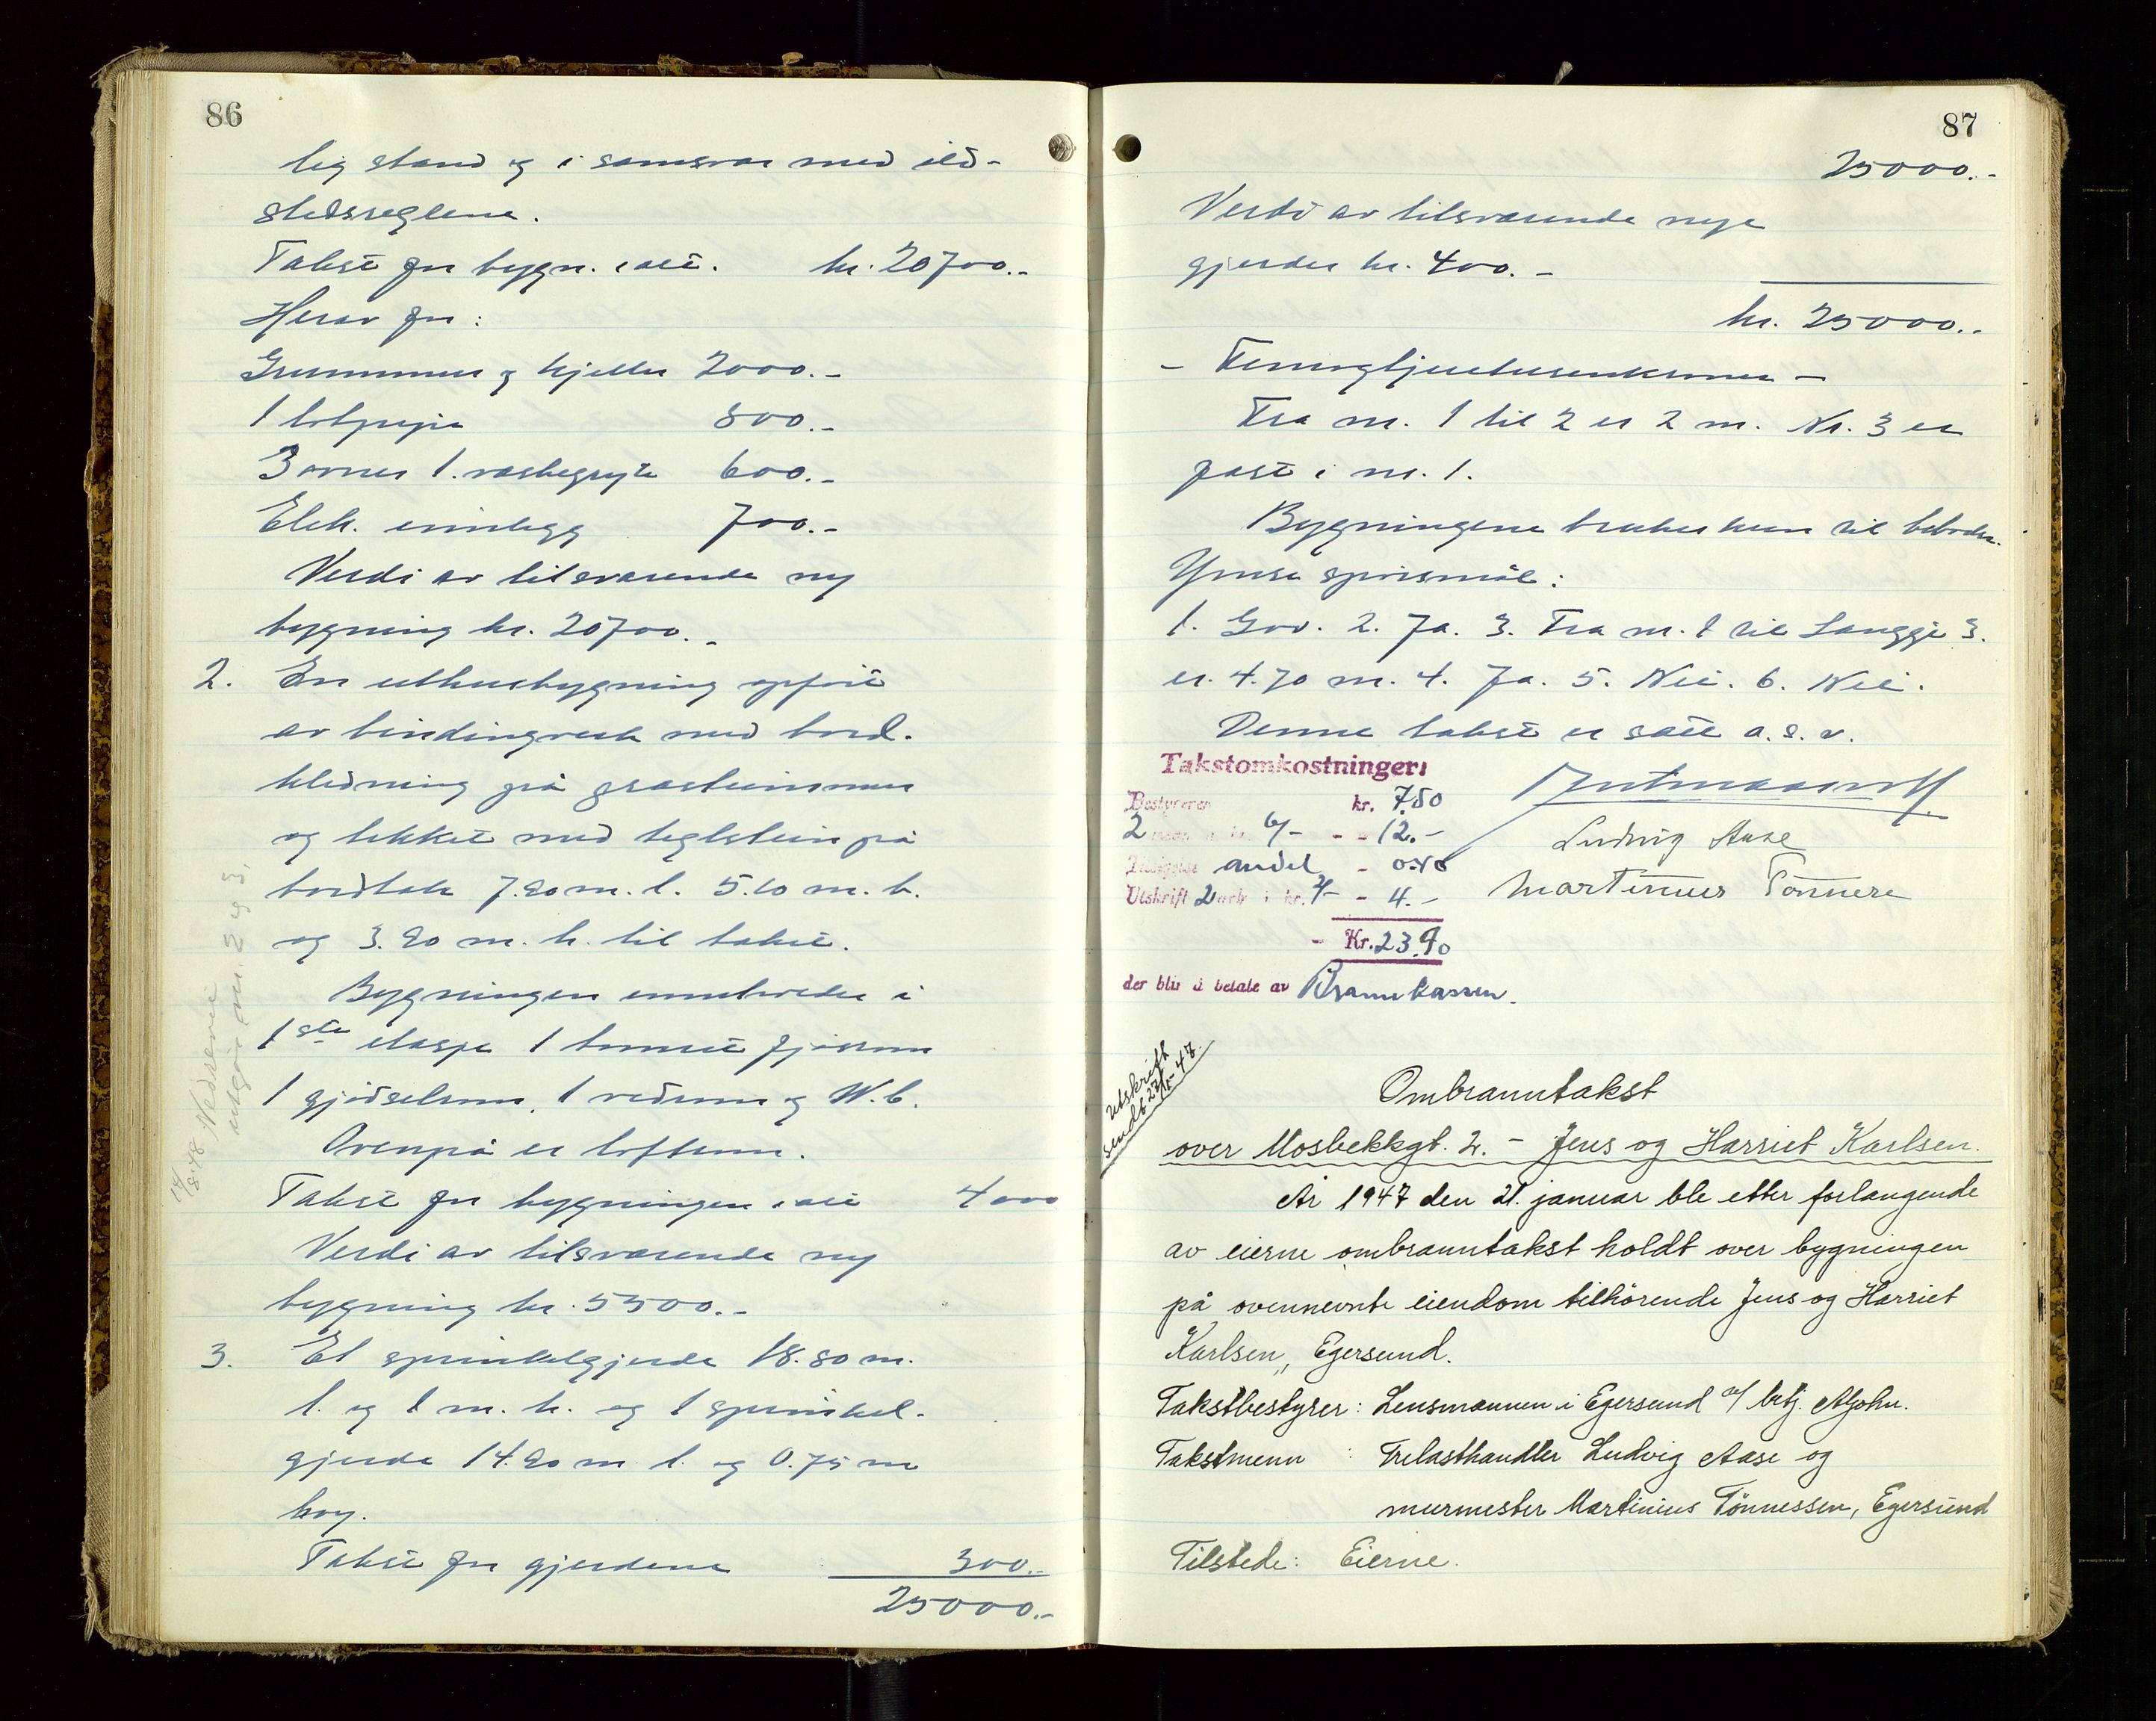 86
lig stand og i samsvar med ild-
stedsreglene.
Takst for bygn. i alt. kr. 20700.-
Herav for:
Grunnmur og kjeller 2000.-
1 lofpipe 800.-
3 ovner 1. vaskegryte 600.-
Elek. innlegg 700.-
Verdi av tilsvarende ny
bygning kr. 20700.-
2. En uthusbygning oppført
av bindingverk med bord-
kledning på gråsteinsmur
og tekket med teglstein på
bordtak 7.20 m. l. 5.10 m. b.
og 3.20 m. h. til taket.
Bygningen inneholder i
1ste etasje 1
1 gjødselrum, 1 vedrum og W.C.
Ovenpå er loftrum.
Takst for bygningen i alt 4000
Verdi av tilsvarende ny
bygning kr. 5500.-
3. Et sprinkelgjerde 18.80 m.
l. og 1 m. h. og 1 sprinkel-
gjerde 14.20 m l. og 0.75 m
høy.
Takst for gjerdene 300.-
25000.-
14/8-48 Nedrevne
utgår nr. 2 og 3.
87
25000.-
Verdi av tilsvarende nye
gjerder kr. 400.-
kr. 25000.-
- Femogtjuetusenkroner -
Fra nr. 1 til 2 er 2 m. Nr. 3 er
fast i nr. 1.
Bygningene brukes kun til beboelse.
Ymse spørsmål:
1. God. 2. Ja. 3. Fra nr. 1 til Langgt. 3.
er 4.70 m. 4. Ja. 5. Nei. 6. Nei.
Denne takst er satt a. s. v.
Takstomkostninger:
Bestyreren kr. 7.50
2 menn à kr. 6/- - - 12.-
andel - 0.40
Utskrift 2 ark à kr. 2/- - 4.-
- Kr. 23.90
der blir å betale av Brannkassen.
Ludvig Aase
Martinius Tønnese
Utskrift
sendt 27/1-47.
Ombranntakst
over Mosbekkgt. 2. - Jens og Harriet Karlsen.
År 1947 den 21. januar ble etter forlangende
av eierne ombranntakst holdt over bygningen
på ovennevnte eiendom tilhörende Jens og Harriet
Karlsen, Egersund.
Takstbestyrer: Lensmannen i Egersund v/ betj.
Takstmenn : Trelasthandler Ludvig Aase og
murmester Martinius Tönnessen, Egersund
Tilstede: Eierne.